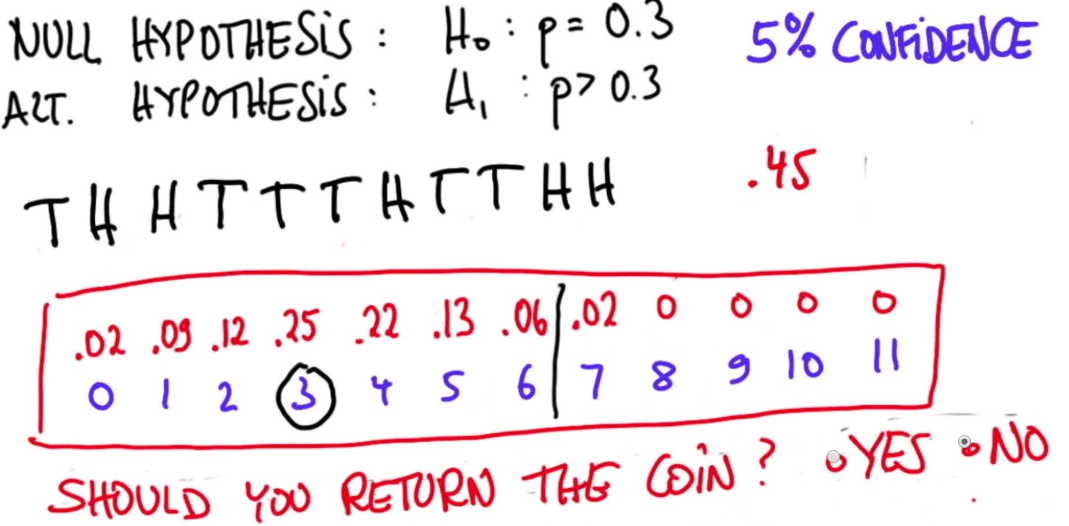 NULL HYPOTHESIS : H₀ : p = 0.3 5% CONFIDENCE
ALT. HYPOTHESIS : H₁ : p > 0.3
T H H T T T H T T H H .45
.02 .09 .12 .25 .22 .13 .06 .02 0 0 0 0
0 1 2 3 4 5 6 7 8 9 10 11
SHOULD YOU RETURN THE COIN? YES NO